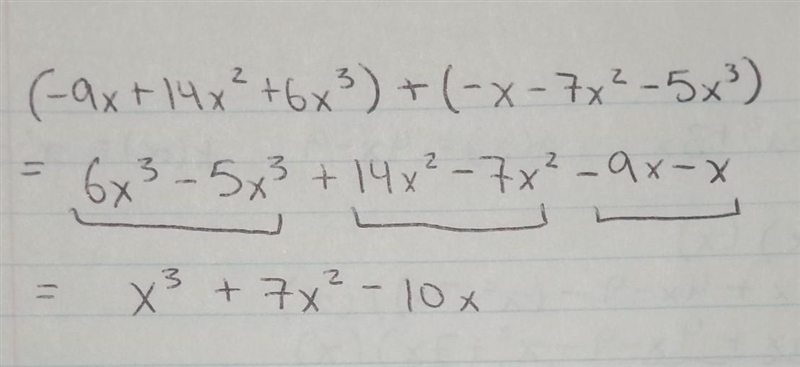 (-9x+14x²+6x³)+(-x-7x²-5x³)
= 6x³-5x³+14x²-7x²-9x-x
= x³+7x²-10x